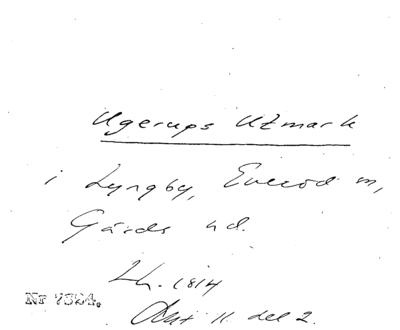 Ugerups Utmark
i Lyngby, Everöd m,
Gärds hd.
Lh. 1814
Akt 11. del 2.
Nr 7324.